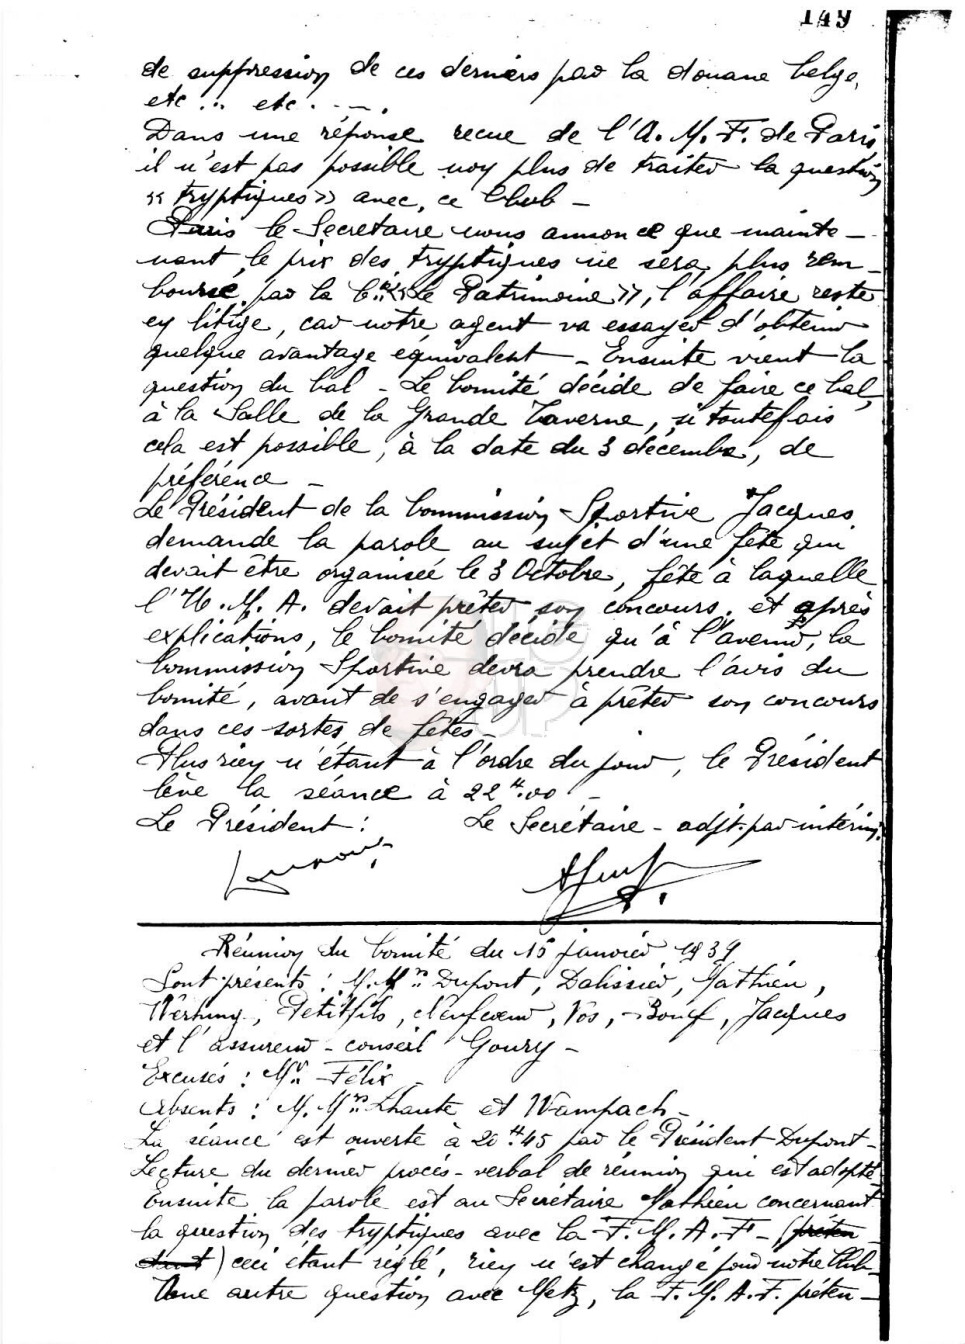 149
de suppression de ces derniers par la douane belge,
etc... etc. - - .
Dans une réponse recue de l'A. M. F. de Paris,
il n'est pas possible non plus de traiter la question
« tryptiques » avec, ce Club -
Puis le Secrétaire nous annonce que mainte-
nant, le prix des, tryptiques ne sera, plus rem-
boursé, par la Cie « Le Patrimoine », l'affaire reste
en litige, car notre agent va essayer d'obtenir
quelque avantage équivalent - Ensuite vient la
question du bal - Le Comité décide de faire ce bal,
à la Salle de la Grande Taverne, si toutefois
cela est possible, à la date du 3 décembre, de
préférence -
Le Président de la Commission Sportive Jacques
demande la parole au sujet d'une fête qui
devait être organisée le 3 Octobre, fête à laquelle
l'U. M. A. devait prêter son concours, et après
explications, le Comité décide qu'à l'avenir, la
Commission Sportive devra prendre l'avis du
Comité, avant de s'engager à prêter son concours
dans ces sortes de fêtes -
Plus rien n'étant à l'ordre du jour, le Président
lève la séance à 22 H. 00 -
Le Président : Le Secrétaire - adjt. par intérim,
Réunion du Comité du 15 janvier 1939
Sont présents : M. Mrs Dupont, Dalissier, Mathieu,
Wertuny, Petitfils, Neufcoeur, Vos, Boeuf, Jacques
et l'assureur - conseil Goury -
Excusés : Mr Félix -
Absents : M. Mrs Lhaute et Wampach -
La séance est ouverte à 20 H. 45 par le Président Dupont -
Lecture du dernier procès-verbal de réunion qui est adopté
Ensuite la parole est au Secrétaire Mathieu concernant
la question des tryptiques avec la F. M. A. F - (préten
dant) ceci étant réglé, rien n'est changé pour notre Club -
Une autre question avec Metz, la F. M. A. F. préten -